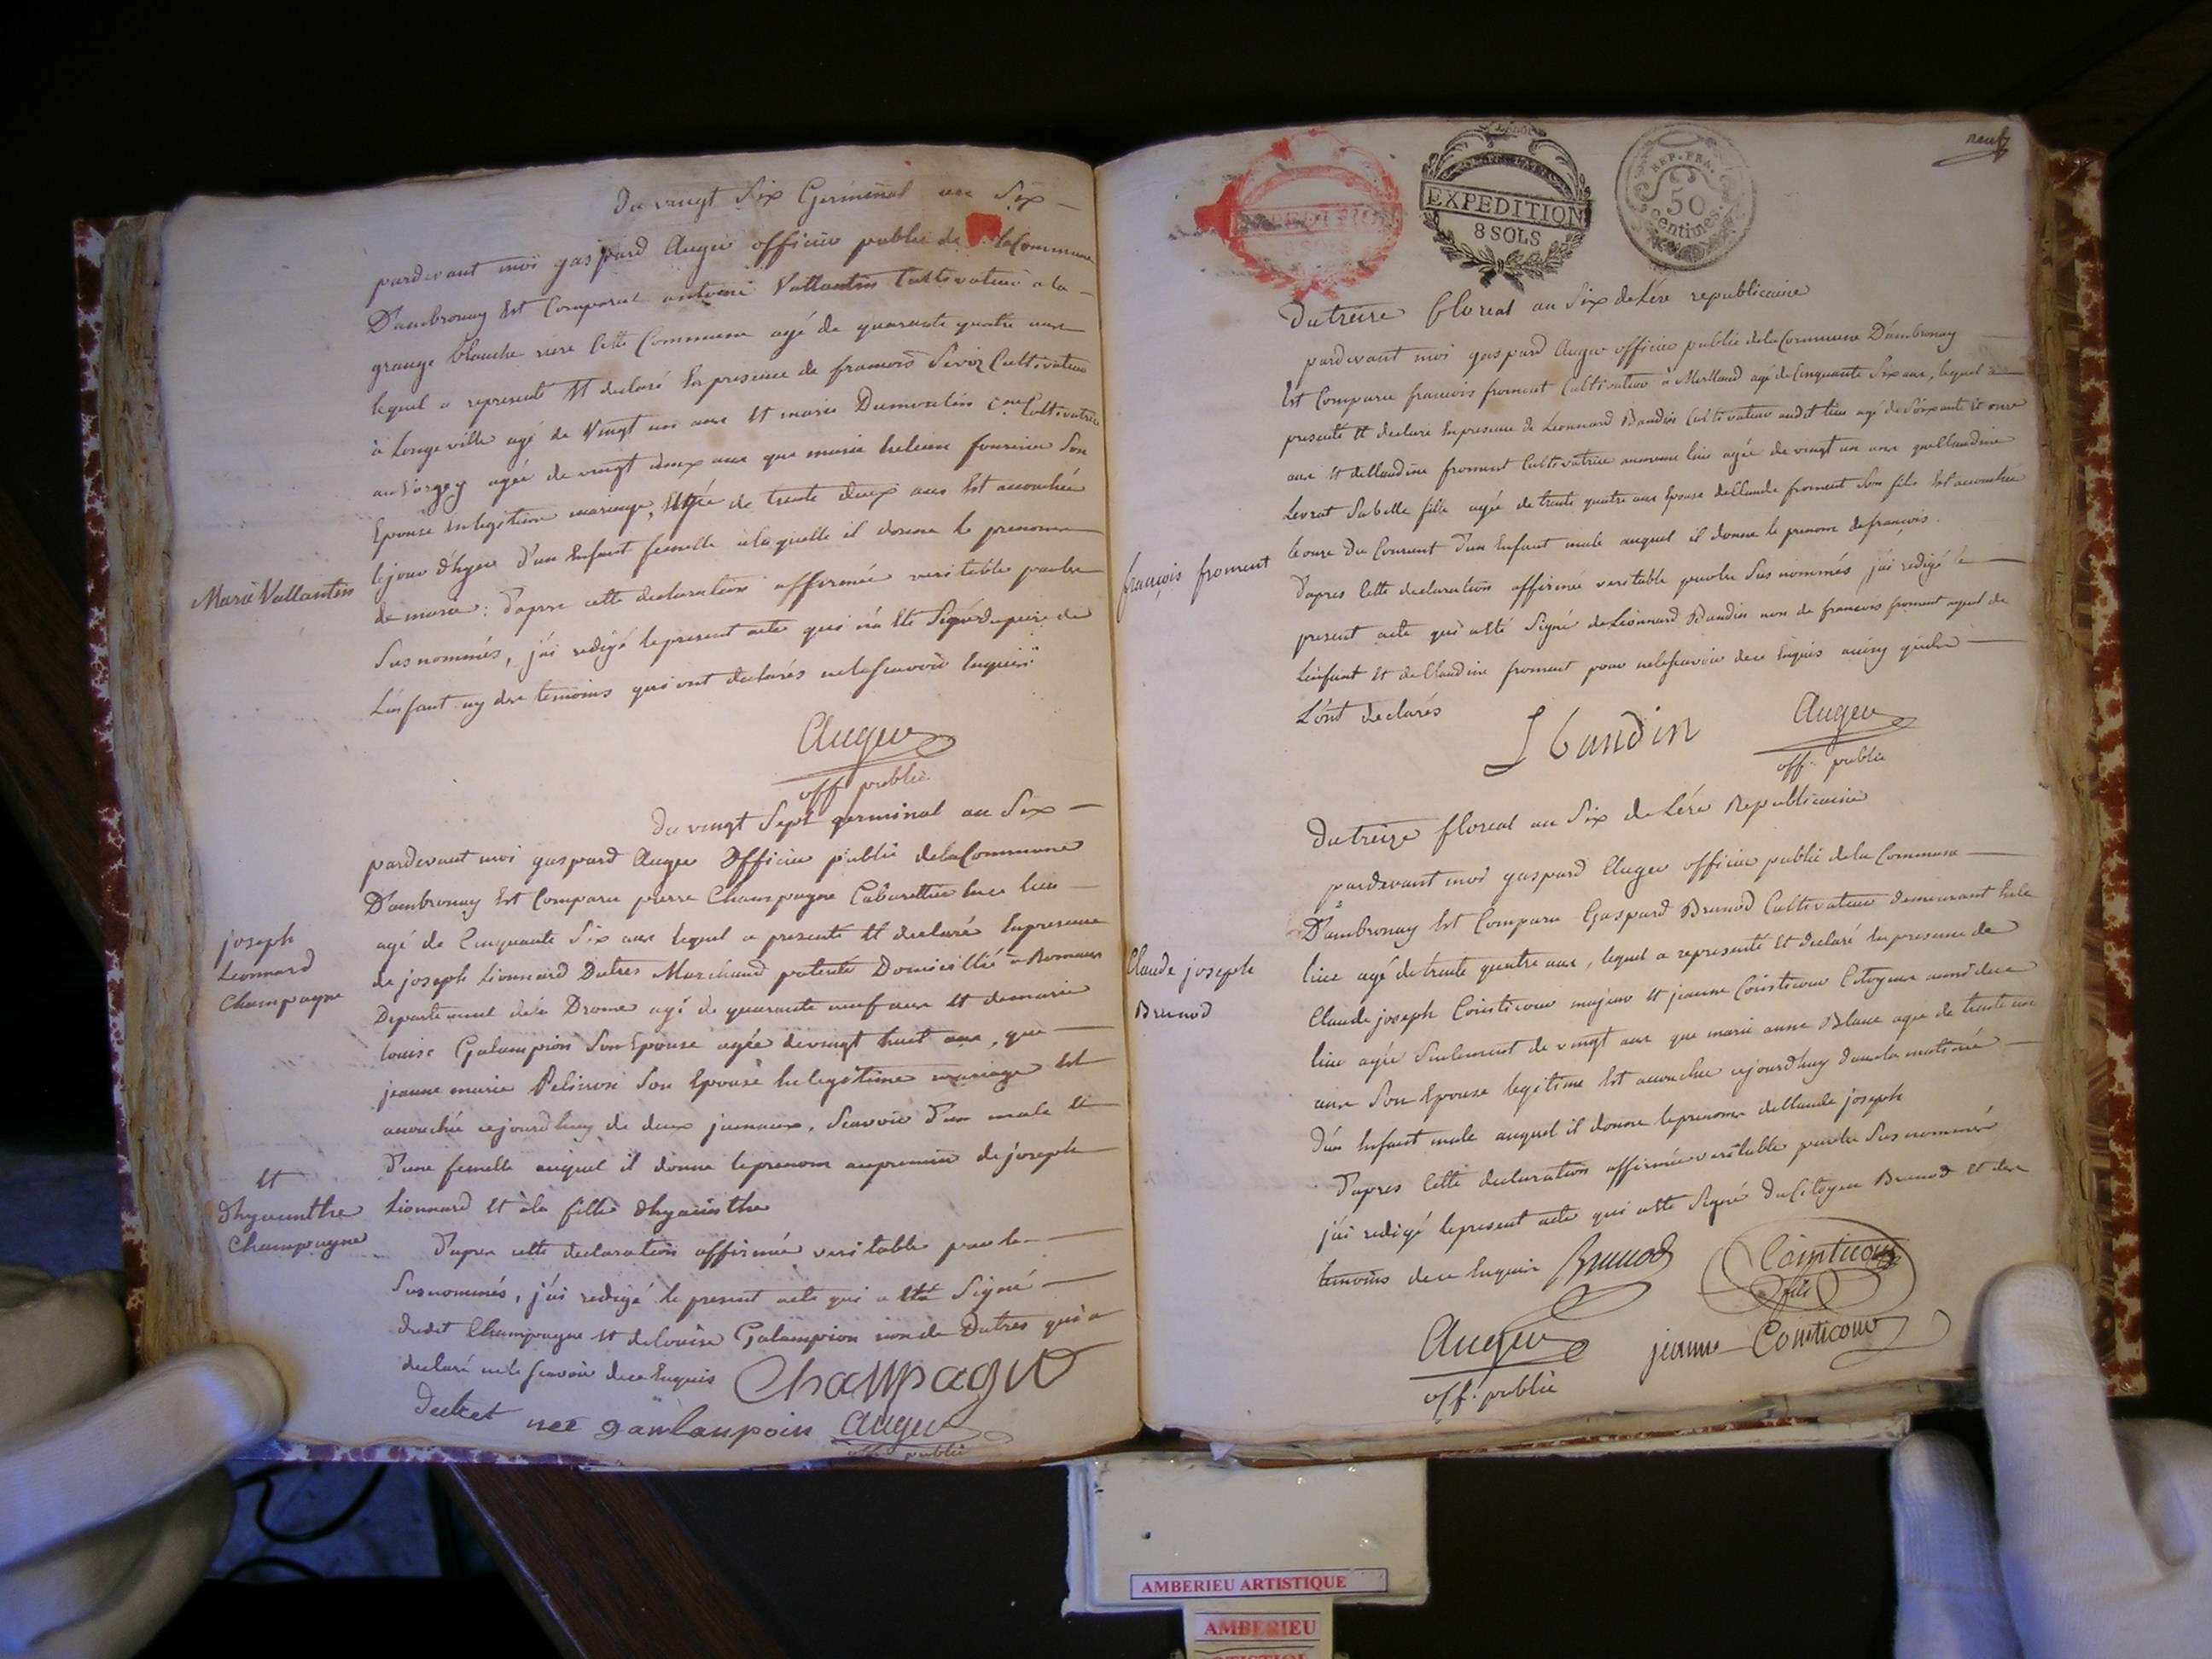 Du vingt Six Germinal an Six
pardevant moi gaspard Auger officier public de la Commune
D'ambronay Est Comparut antoine Vallantin Cultivateur a la
grange blanche riere Cette Commune agé de quarante quatre ans
lequel a representé Et declaré En presence de francois Cultivateur
à Longeville agé de Vingt un ans Et marie Dumoulin Cultivatrice
au agée de vingt deux ans que marie helene fourrier Son
Epouse En legitime mariage, Agée de trente deux ans Est accouchée
le jour d'hyer d'un Enfant femelle à laquelle il donne le prenom
Marie Vallantin
de marie : d'apres cette declaration affirmée veritable par les
Susnommés, j'ai redigé le present acte qui n'a Eté Signé du pere de
L'enfant ny des temoins qui ont declarés ne le Scavoir Enquis
Auger
off. public
Du vingt Sept germinal an Six
pardevant moi gaspard Auger Officier public de la Commune
D'ambronay Est Comparu pierre Champagne Cabarettier En ce lieu
joseph
Leonnard
Champagne
agé de Cinquante Six ans lequel a presenté Et declaré En presence
de joseph Lionnard Dutres Marchand patenté Domicillié a Romans
Departement de la Drome agé de quarante neuf ans Et de marie
louise Galampion Son Epouse agée de vingt huit ans, que
jeanne marie Pelisson Son Epouse En legitime mariage Est
accouchée cejourd'huy de deux jumeaux, Scavoir d'un male Et
d'une femelle auquel il donne le prenom au premier de joseph
Et
dhyacinthe
Champagne
Lionnard Et à la fille dhyacinthe
D'apres cette declaration affirmée veritable par les
Susnommés, j'ai redigé le present acte qui a Eté Signé
dudit Champagne Et de louise Galampion non de Dutres qui a
declaré ne le Scavoir de ce Enquis Champagne
nee ganlanpoin Auger
off. public
neuf
EXPEDITION
8 SOLS
EXPEDITION
8 SOLS
REP. FRA.
50
centimes.
Du treize floreal an Six de L'ére republicaine
pardevant moi gaspard Auger officier public de la Commune D'ambronay
Est Comparu francois froment Cultivateur à Merland agé de Cinquante Six ans, lequel a
presenté Et declaré En presence de Leonnard Baudin Cultivateur audit lieu agé de Soixante Et onze
ans Et de Claudine froment Cultivatrice au meme lieu agée de vingt un ans que Claudine
Levrat Sa belle fille agée de trente quatre ans Epouse de Claude froment Son fils Est accouchée
françois froment
le onze du Courant d'un Enfant male auquel il donne le prenom de françois.
D'apres Cette declaration affirmée veritable par les Susnommés, j'ai redigé le
present acte qui a Eté Signé de Lionnard Baudin non de francois froment ayeul de
L'enfant Et de Claudine froment pour ne le Scavoir de ce Enquis ainsy qu'ils
L'ont declarés
L baudin Auger
off. public
Du treize floreal an Six de L'ére Republicaine
pardevant moi gaspard Auger officier public de la Commune
D'ambronay Est Comparu Gaspard Brunod Cultivateur demeurant En ce
Claude joseph
Brunod
lieu agé de trente quatre ans, lequel a representé Et declaré En presence de
Claude joseph Cointicour majeur Et jeanne Cointicour Citoyens aussi de ce
lieu agée Seulement de vingt ans que marie anne Blanc agée de trente un
ans Son Epouse legitime Est accouchée cejourd'huy dans la matinée
d'un Enfant male auquel il donne le prenom de Claude joseph
D'apres Cette declaration affirmée veritable par les Susnommés
j'ai redigé le present acte qui a Eté Signé du Citoyen Brunod Et des
temoins de ce Enquis Brunod Cointicour
fils
Auger
off. public
jeanne Cointicour
AMBERIEU ARTISTIQUE
AMBERIEU
ARTISTIQUE